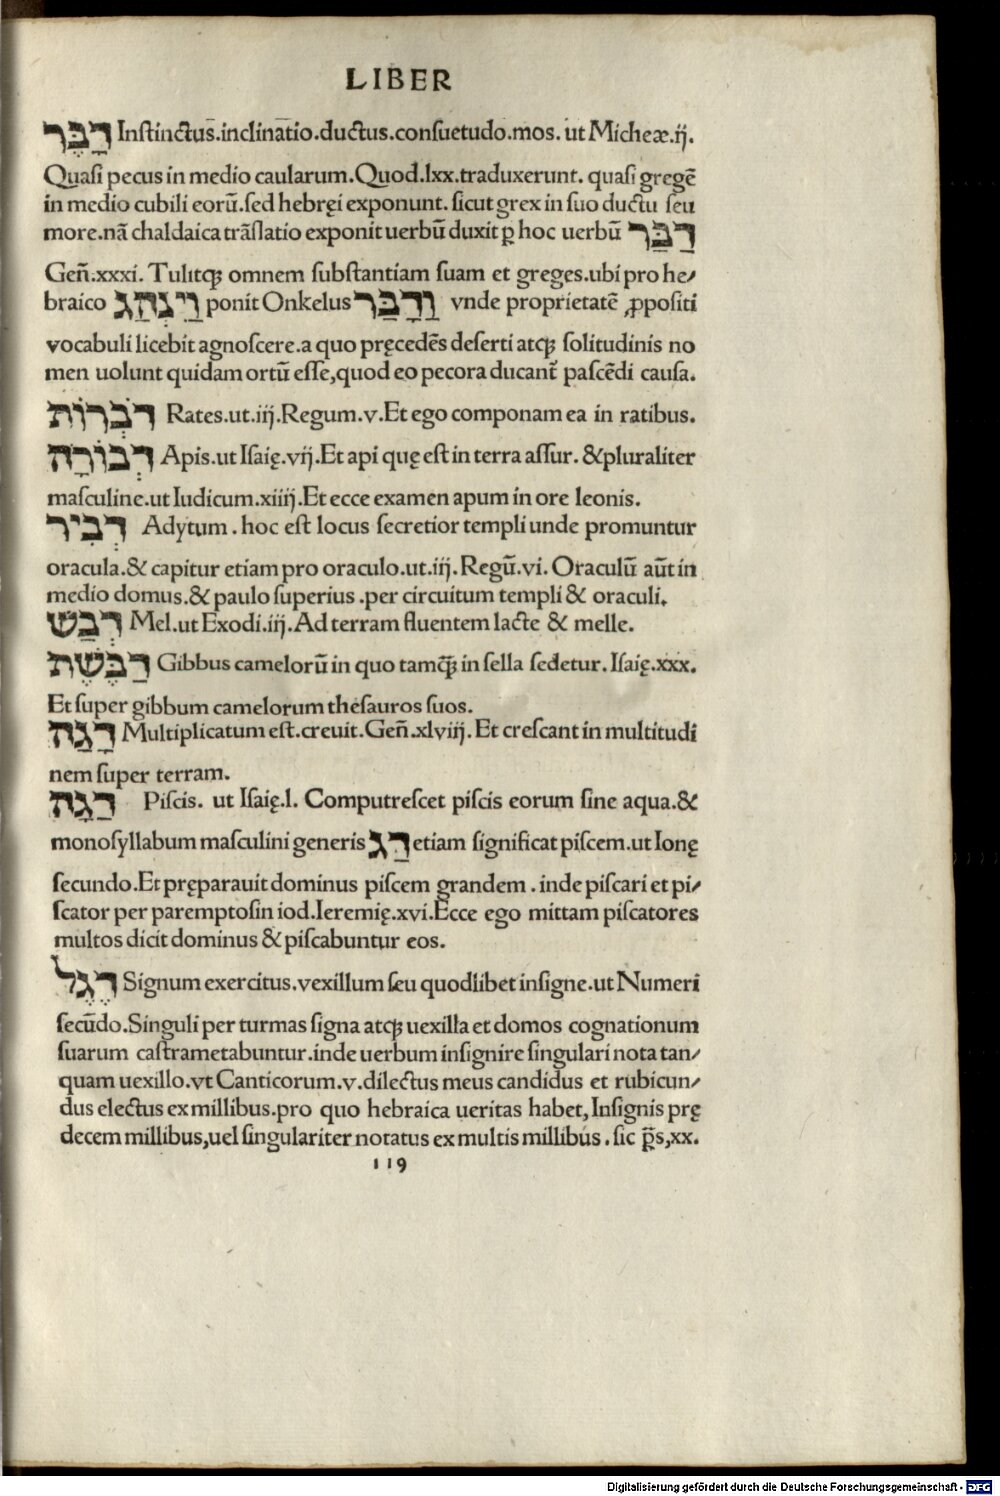 LIBER
דָבֶּר Instinctus.inclinatio.ductus.consuetudo.mos. ut Micheæ.ij.
Quasi pecus in medio caularum.Quod.lxx.traduxerunt. quasi gregē
in medio cubili eorū.sed hebręi exponunt. sicut grex in suo ductu seu
more.nā chaldaica trāslatio exponit uerbū duxit ꝑ hoc uerbū דַבַּר
Geñ.xxxi. Tulitqꝫ omnem substantiam suam et greges.ubi pro he/
braico וַיִנְהַג ponit Onkelus וַדָבַּר vnde proprietatē ꝓpositi
vocabuli licebit agnoscere.a quo pręcedēs deserti atqꝫ solitudinis no
men uolunt quidam ortū esse,quod eo pecora ducant᷑ pascēdi causa.
דֹבְרוֹת Rates.ut.iij.Regum.v.Et ego componam ea in ratibus.
דְבוֹרָה Apis.ut Isaię.vij.Et api quę est in terra assur. &pluraliter
masculine.ut Iudicum.xiiij.Et ecce examen apum in ore leonis.
דְבִיר Adytum . hoc est locus secretior templi unde promuntur
oracula.& capitur etiam pro oraculo.ut.iij. Regū.vi. Oraculū aūt in
medio domus.& paulo superius .per circuitum templi & oraculi.
דְבַשׁ Mel.ut Exodi.iij.Ad terram fluentem lacte & melle.
דַבֶּשֶׁת Gibbus camelorū in quo tamqꝫ̄ in sella sedetur. Isaię.xxx.
Et super gibbum camelorum thesauros suos.
דָגַה Multiplicatum est.creuit.Geñ.xlviij. Et crescant in multitudi
nem super terram.
דַגָה Piscis. ut Isaię.l. Computrescet piscis eorum sine aqua.&
monosyllabum masculini generis דַג etiam significat piscem.ut Ionę
secundo.Et pręparauit dominus piscem grandem . inde piscari et pi/
scator per paremptosin iod.Ieremię.xvi.Ecce ego mittam piscatores
multos dicit dominus & piscabuntur eos.
דֶגֶל Signum exercitus.vexillum seu quodlibet insigne.ut Numeri
secūdo.Singuli per turmas signa atqꝫ uexilla et domos cognationum
suarum castrametabuntur.inde uerbum insignire singulari nota tan/
quam uexillo.vt Canticorum.v.dilectus meus candidus et rubicun/
dus electus ex millibus.pro quo hebraica ueritas habet,Insignis prę
decem millibus,uel singulariter notatus ex multis millibus . sic p̄s,xx.
119
Digitalisierung gefördert durch die Deutsche Forschungsgemeinschaft - DFG